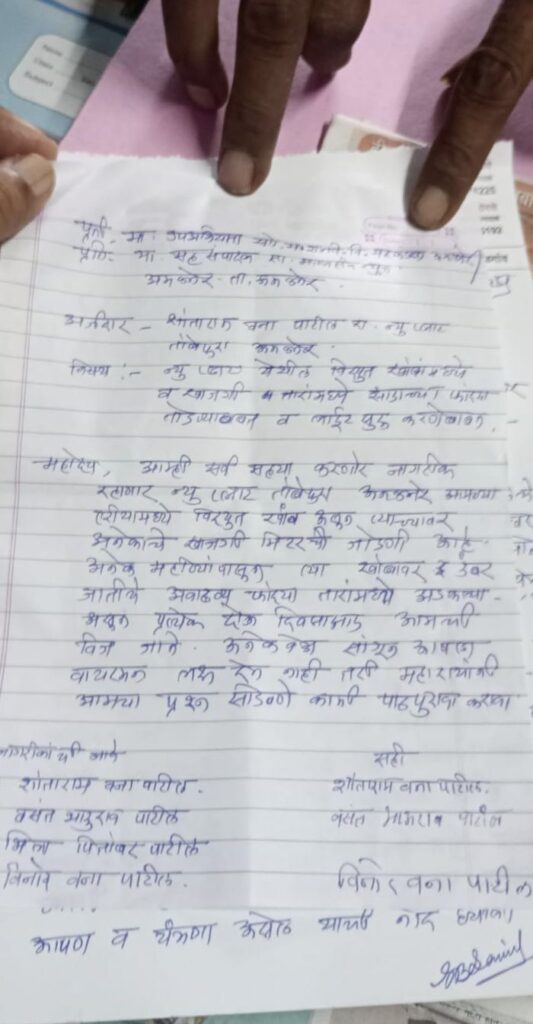 प्रती. मा. उपअभियंता
प्रति. मा. सह संपादक सा.
अमळनेर. ता. अमळनेर.
अर्जदार - शांताराम वना पाटील रा. न्यु प्लाट
तांबेपुरा अमळनेर.
विषय :- न्यु प्लाट येथील विद्युत खांबांमध्ये
व खाजगी तारांमध्ये झाडाच्या फांद्या
तोडण्याबाबत व लाईट सुरु करणेबाबत.
महोदय, आम्ही सर्व सह्या करणारे नागरीक
रहाणार न्यु प्लाट तांबेपुरा अमळनेर आमच्या
एरीयामध्ये विद्युत खांब असुन त्याच्यावर
अनेकांचे खाजगी मिटरची जोडणी आहे.
अनेक महीण्यापासुन त्या खांबावर
जातीचे अवाढव्य फांद्या तारांमध्ये अडकल्या
असुन प्रत्येक दोन दिवसाआड आमची
विज जाते. अनेकवेळा सांगुन आपला
वायरमन लक्ष देत नाही तरी महाशयांनी
आमचा प्रश्न सोडवणे कामी पाठपुरावा करावा
नागरीकांची नावे
सही
शांताराम वना पाटील.
शांताराम वना पाटील.
वसंत पाटील
वसंत पाटील
भिला पितांबर पाटील
विनोद वना पाटील.
विनोद वना पाटील
आपण व यंत्रणा याची नोंद घ्यावी